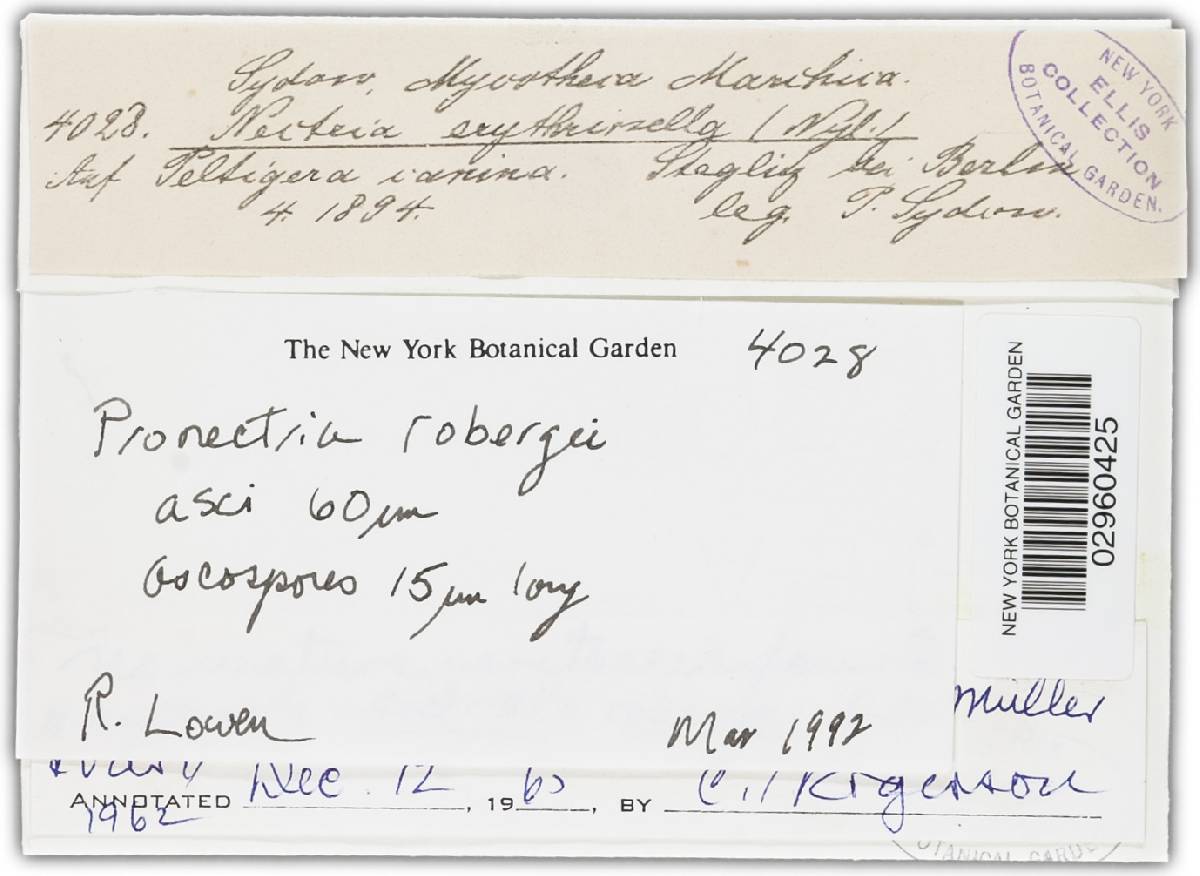 Sydow, Mycotheca Marchica.
4028. Nectria erythrinella (Nyl.)
Auf Peltigera canina. Steglitz bei Berlin
4. 1894. leg. P. Sydow.
NEW YORK
ELLIS
COLLECTION
BOTANICAL GARDEN.
The New York Botanical Garden 4028
Pronectria robergei
asci 60 µm
ascospores 15 µm long
R. Lowen Mar 1992
NEW YORK BOTANICAL GARDEN
02960425
Müller
ANNOTATED Dec. 12, 1963, BY C. T. Rogerson
1962
BOTANICAL GARDEN